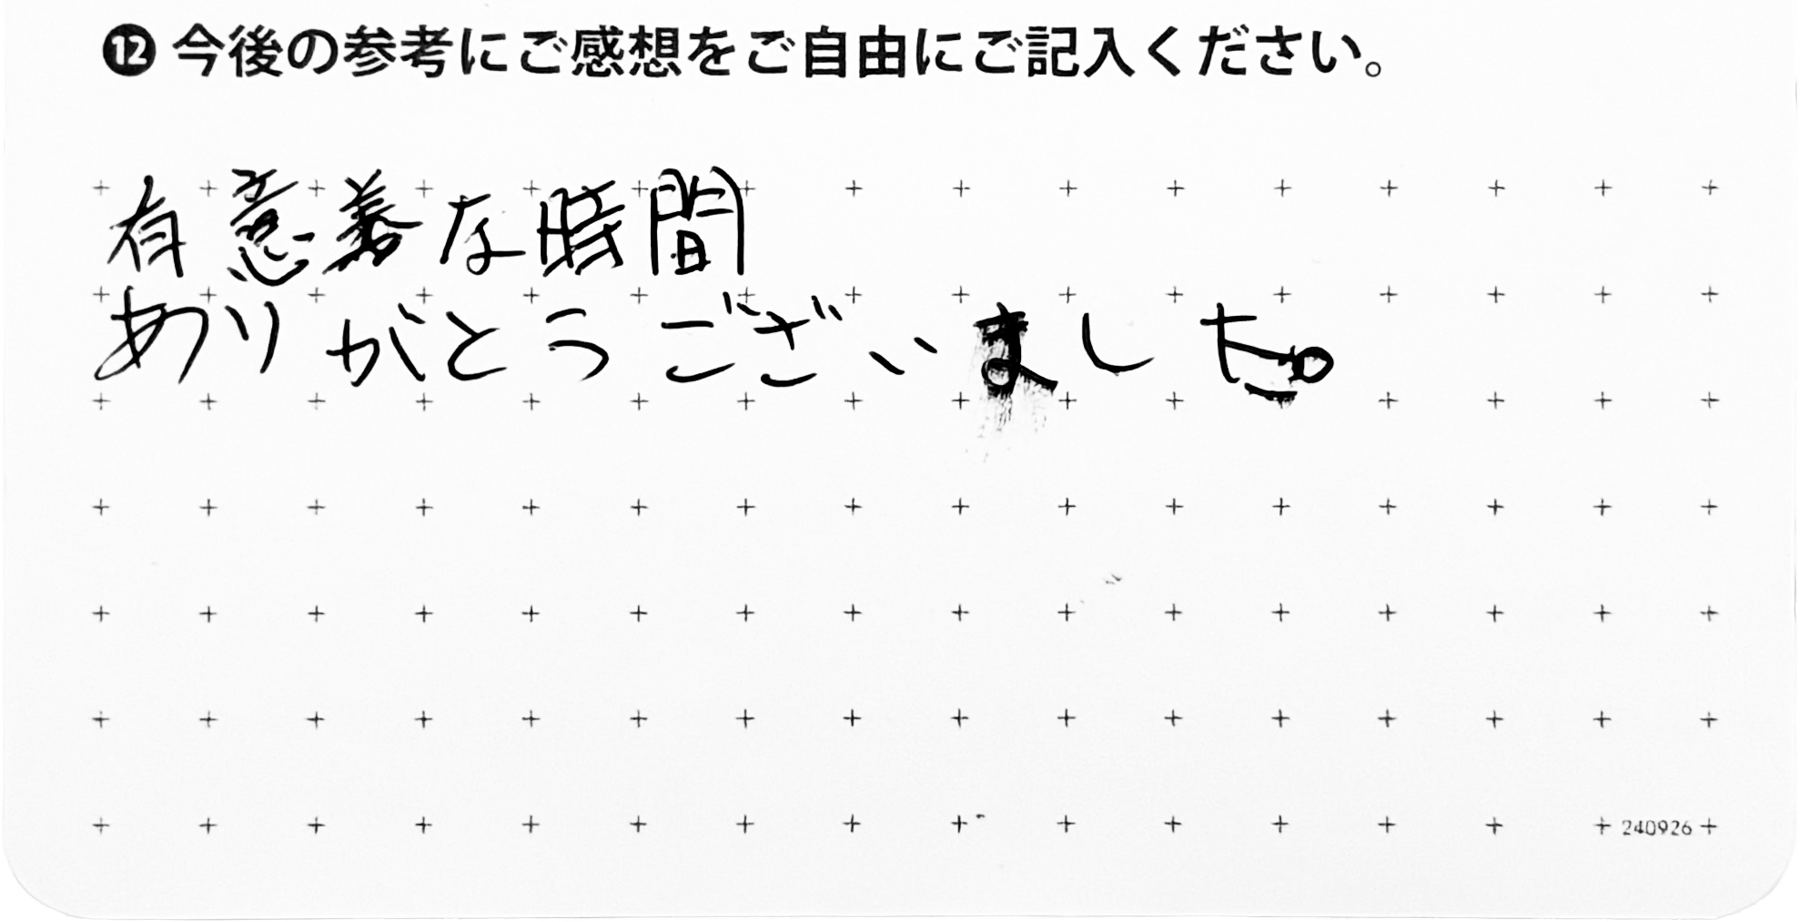 ⓬ 今後の参考にご感想をご自由にご記入ください。
有意義な時間
ありがとうございました。
240926